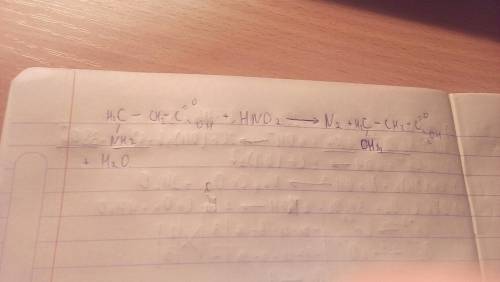 H₂C – CH₂–C =O –OH + HNO₂ ⟶ N₂ + H₂C – CH₂–C =O –OH
NH₂ OH
+ H₂O